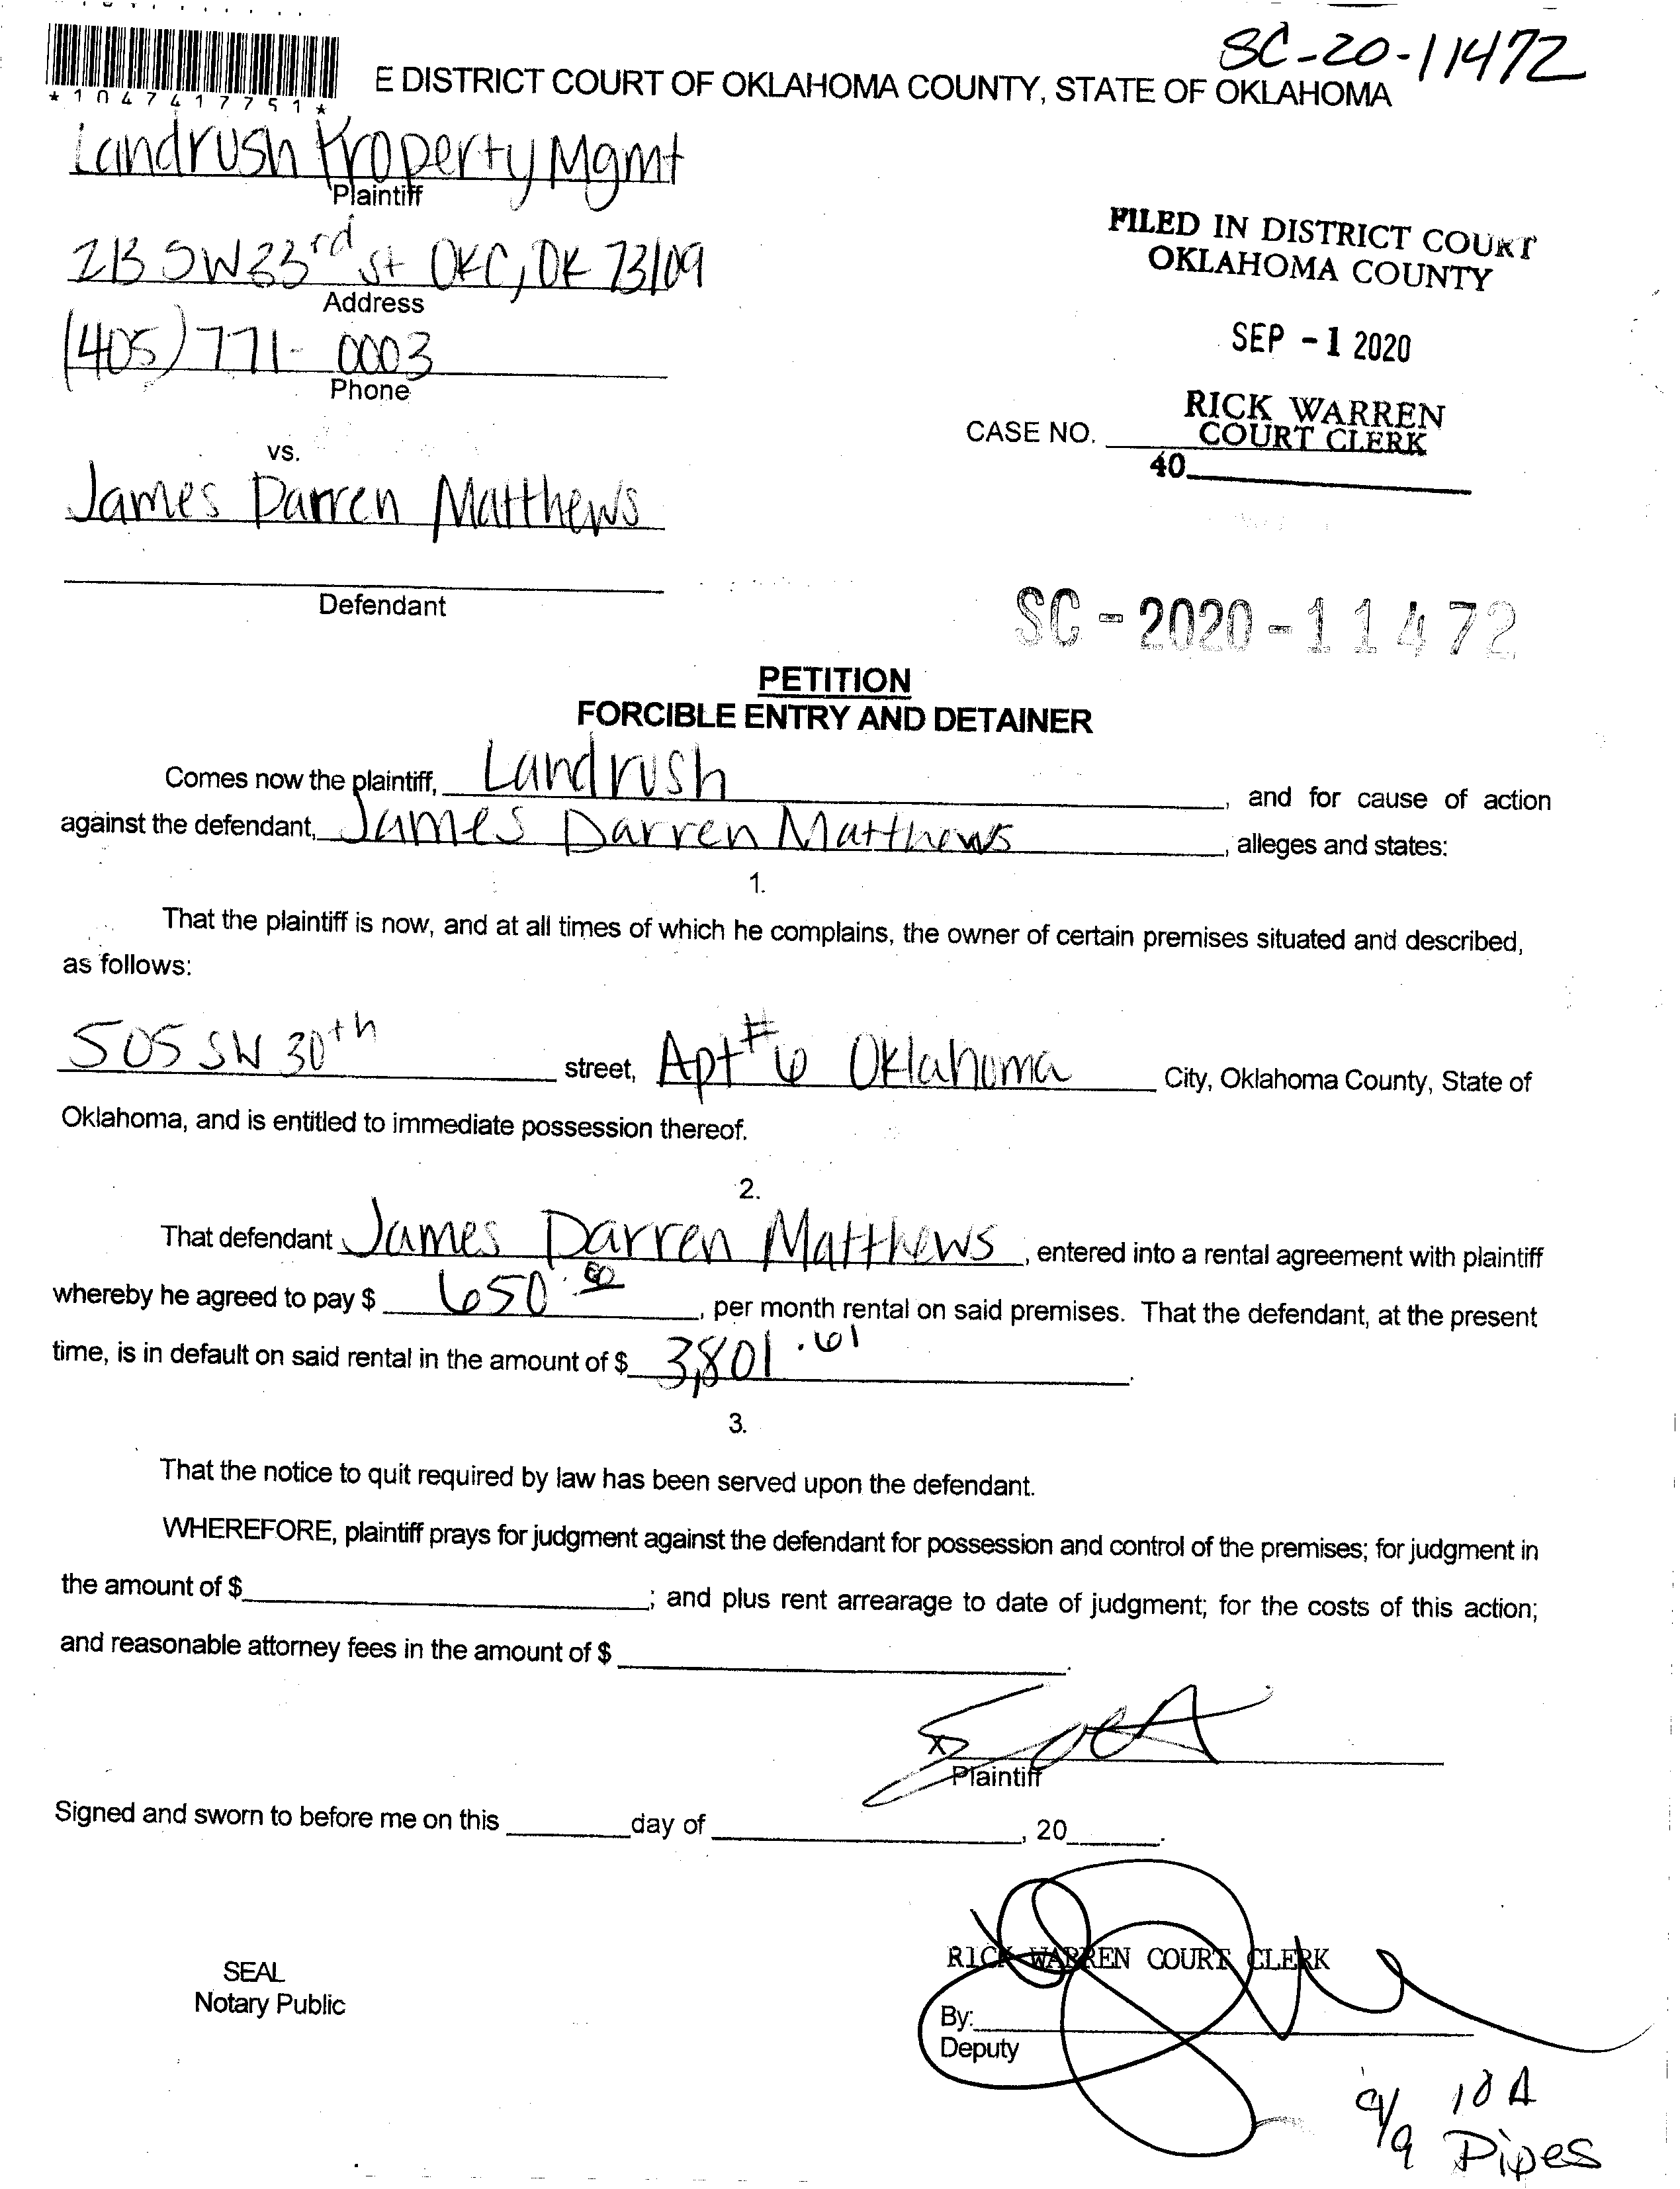 SC-20-11472
*1047417751*
E DISTRICT COURT OF OKLAHOMA COUNTY, STATE OF OKLAHOMA
Landrush Property Mgmt
Plaintiff
213 SW 33rd St OKC, OK 73109
Address
(405) 771-0003
Phone
FILED IN DISTRICT COURT
OKLAHOMA COUNTY
SEP -1 2020
RICK WARREN
COURT CLERK
CASE NO.
40
vs.
James Darren Matthews
Defendant
SC-2020-11472
PETITION
FORCIBLE ENTRY AND DETAINER
Comes now the plaintiff, Landrush, and for cause of action
against the defendant, James Darren Matthews, alleges and states:
1.
That the plaintiff is now, and at all times of which he complains, the owner of certain premises situated and described,
as follows:
505 SW 30th street, Apt #6 Oklahoma City, Oklahoma County, State of
Oklahoma, and is entitled to immediate possession thereof.
2.
That defendant James Darren Matthews, entered into a rental agreement with plaintiff
whereby he agreed to pay $ 650.00, per month rental on said premises. That the defendant, at the present
time, is in default on said rental in the amount of $ 3,801.61.
3.
That the notice to quit required by law has been served upon the defendant.
WHEREFORE, plaintiff prays for judgment against the defendant for possession and control of the premises; for judgment in
the amount of $ ; and plus rent arrearage to date of judgment; for the costs of this action;
and reasonable attorney fees in the amount of $ .
X
Plaintiff
Signed and sworn to before me on this day of , 20 .
SEAL
Notary Public
RICK WARREN COURT CLERK
By:
Deputy
9/9 10 A
Pipes